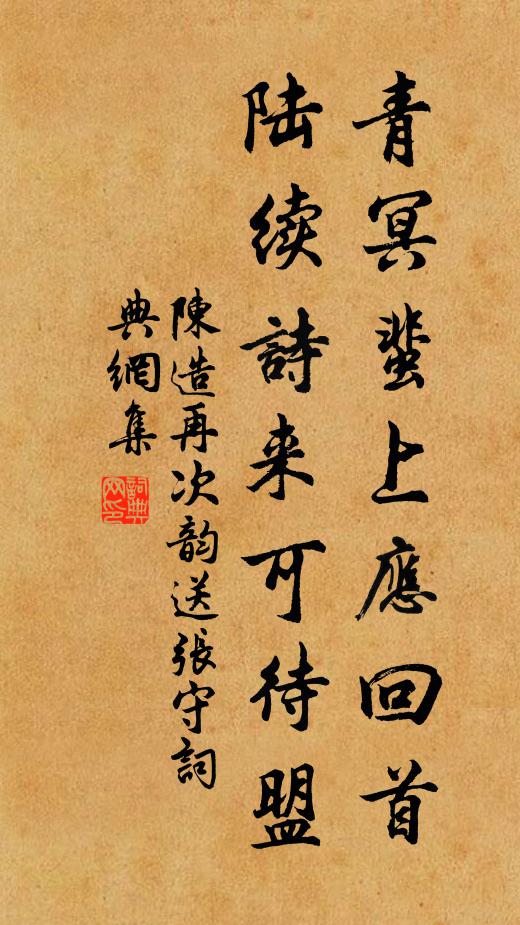 青冥蜚上應回首
陸续詩来可待盟
陳造再次韵送張守詞
典網集
詞典
网印